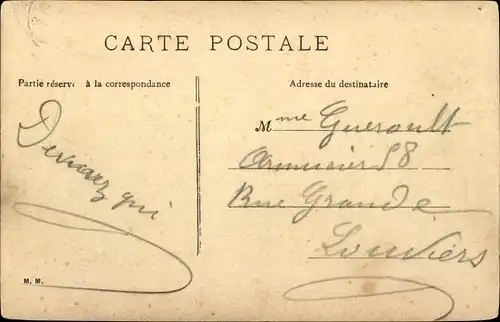 CARTE POSTALE
Partie réservé à la correspondance
Adresse du destinataire
Devinez qui
Mme Guerault
Armurier 58
Rue Grande
Louviers
M. M.